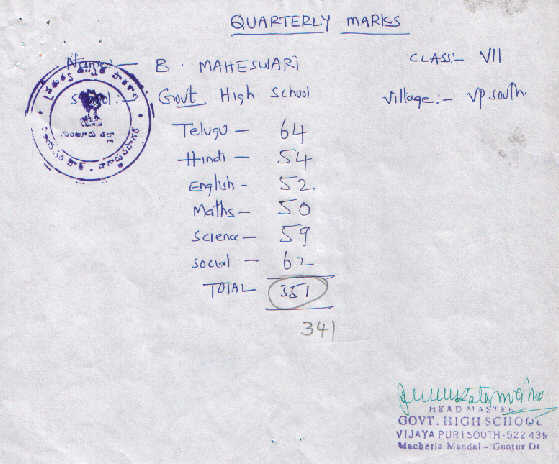 QUARTERLY MARKS
Name :- B. MAHESWARI CLASS:- VII
School :- Govt High School Village :- VP. South
Telugu - 64
Hindi - 54
English - 52
Maths - 50
Science - 59
Social - 62
TOTAL 351
341
HEAD MASTER
GOVT. HIGH SCHOOL
VIJAYA PURI SOUTH-522 439
Macherla Mandal - Guntur Dt